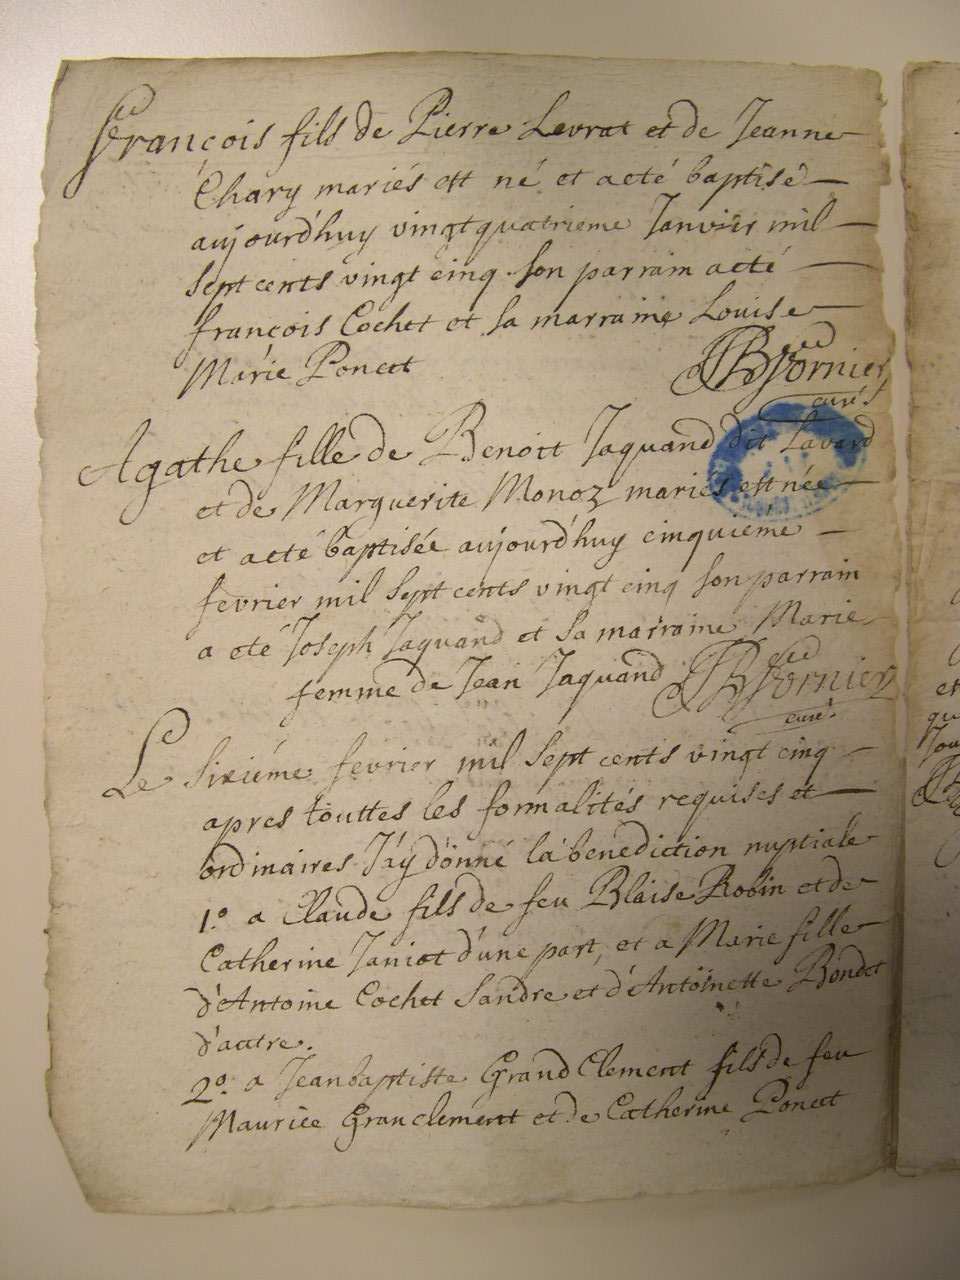 François fils de Pierre Levrat et de Jeanne
Chary mariés est né et acté baptisé
aujourd'huy vingtquatrieme Janvier mil
sept cents vingt cinq son parrain acté
françois Cochet et sa marraine Louise
Marie Poncet
JB fornier
curé
Agathe fille de Benoit Jaquand dit Lavard
et de Marguerite Monoz mariés est née
et acté baptisée aujourd'huy cinquiéme
fevrier mil sept cents vingt cinq son parrain
a eté Joseph Jaquand et sa marraine Marie
femme de Jean Jaquand JB fornier
curé
Le sixiéme fevrier mil sept cents vingt cinq
apres touttes les formalités requises et
ordinaires J'ay donné la benediction nuptiale
1.º a Claude fils de feu Blaise Robin et de
Catherine Janiot d'une part, et a Marie fille
d'Antoine Cochet Sandre et d'Antoinette Bondet
d'autre.
2.º a Jeanbaptiste Grand Clement fils de feu
Maurice Granclement et de Catherine Poncet
et
qu